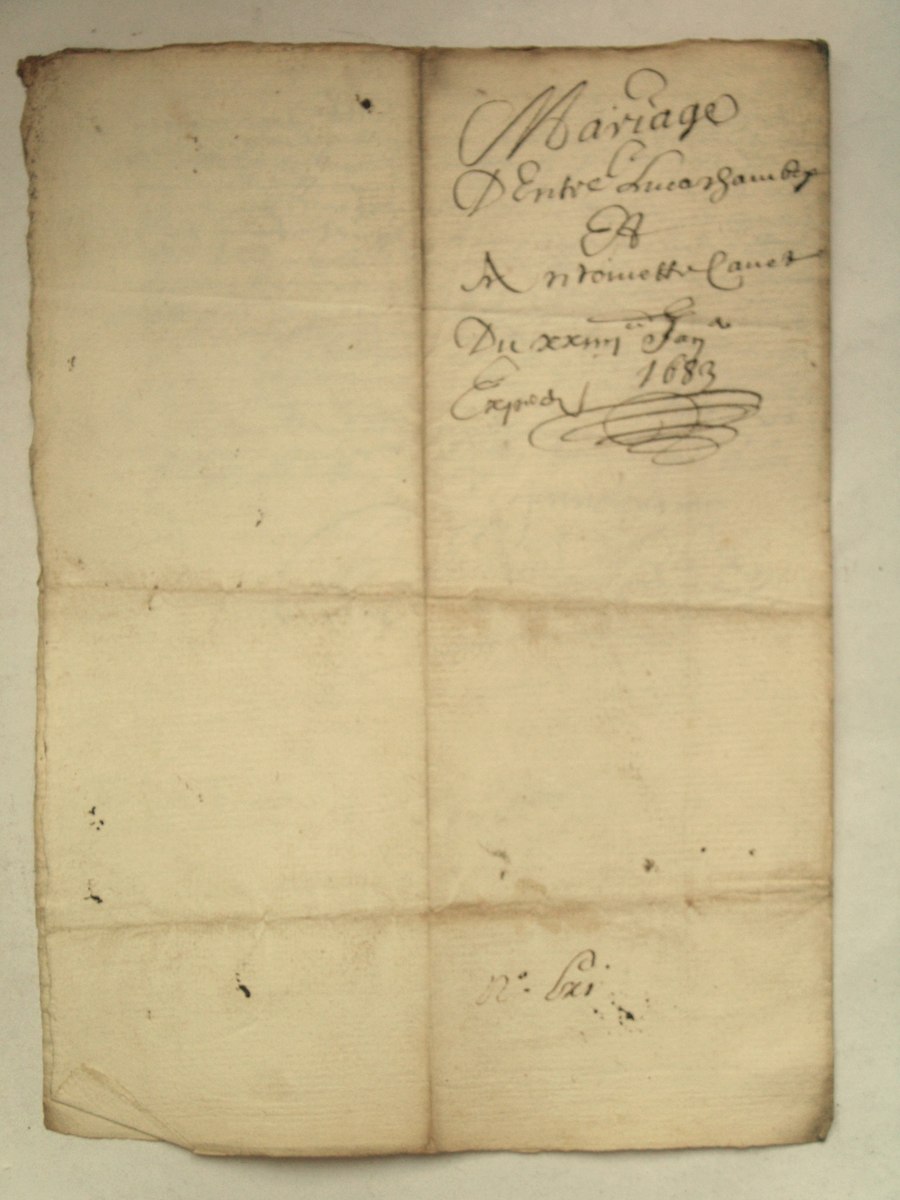 Mariage
D'Entre Lucas Jambe
Et
Antoinette Canet
Du xxiiii Jan
1683
Exped
N°. Lxi